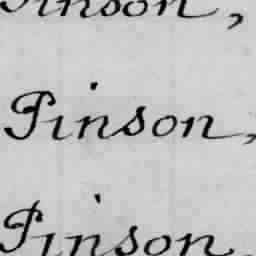 Pinson,
Pinson,
Pinson